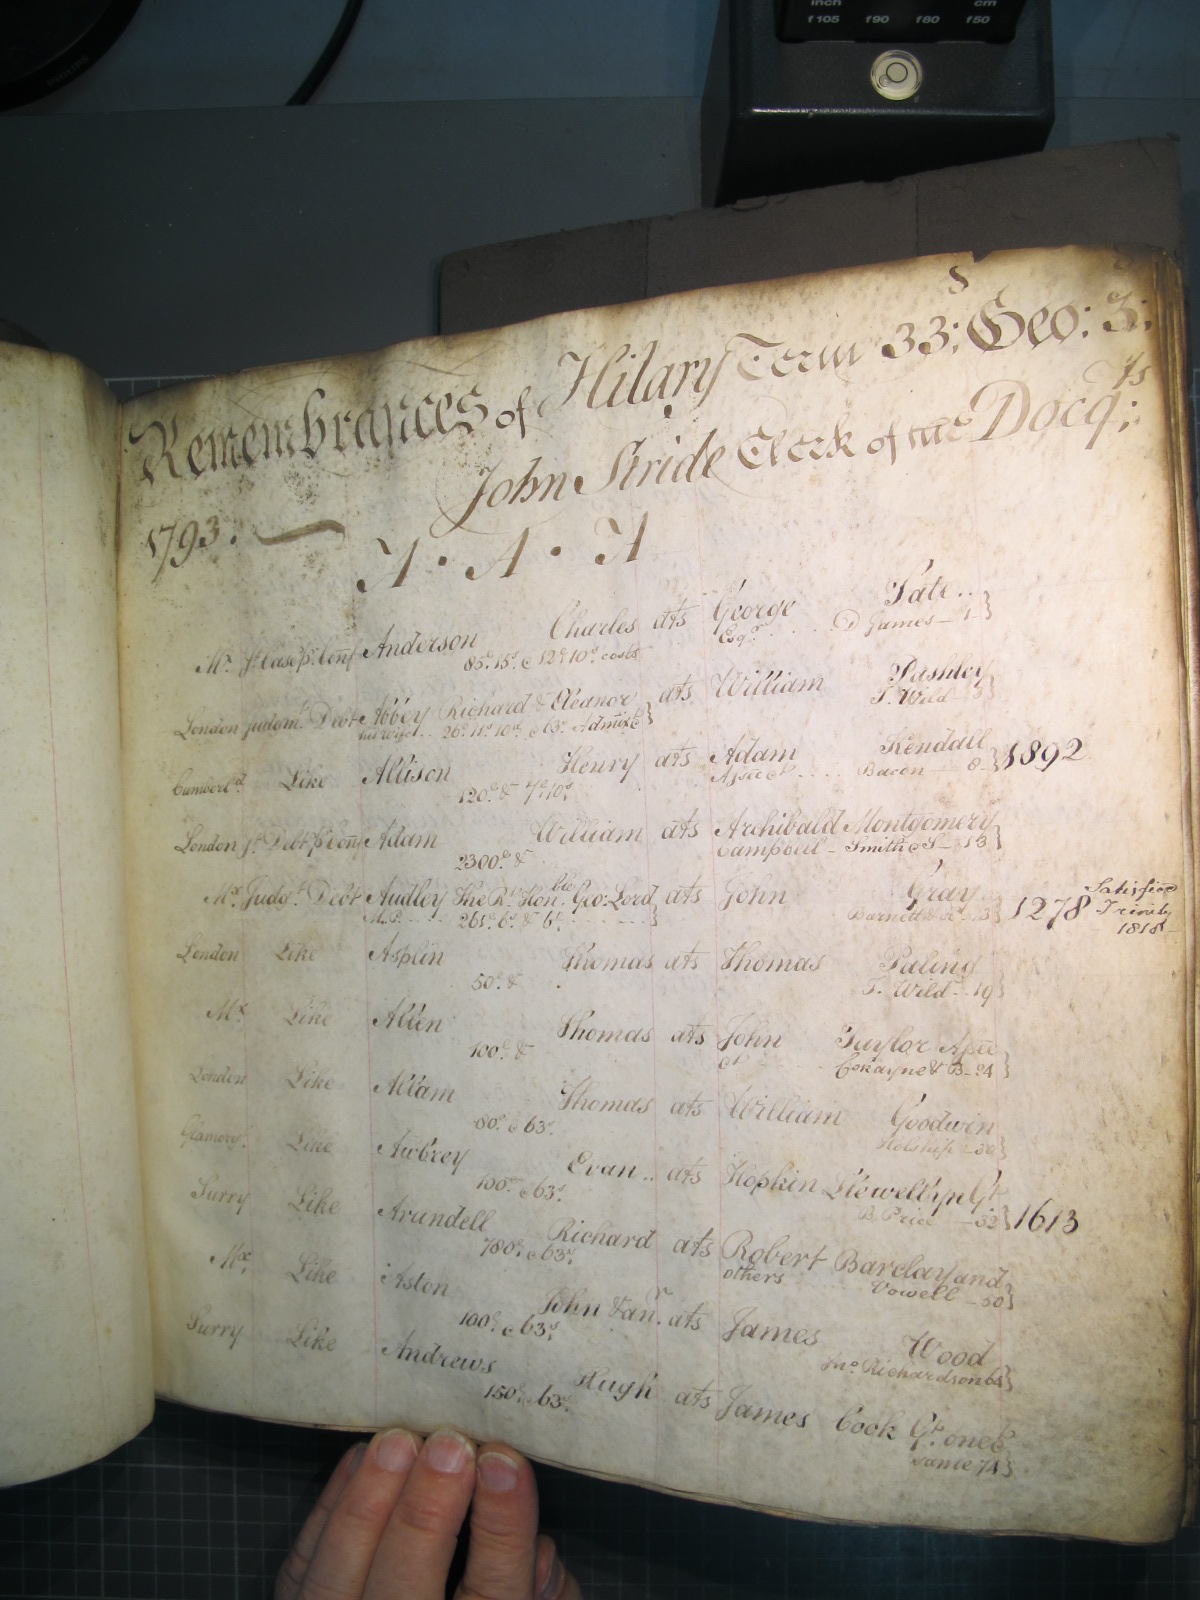 inch cm
f105 f90 f80 f50
S
Remembrances of Hilary Term 33: Geo: 3:
John Stride Clerk of the Docq:ts
1793:
A · A · A
Mx Anderson Charles ats George Tate..
85£. 15s. & 12£ 10s. costs Esqr. D James 1
London Judgmt. Debt Abbey Richard & Eleanor ats William Pashley
26£. 11s. 10d. & 63s. Admixt T. Wild 3
Cumberld. Like Allison Henry ats Adam Kendall 1892
120£. & 7£ 10s. Assee &c Bacon 8
London Jt. Debt p conf Adam William ats Archibald Montgomery
2300£. & Campbell - Smith & S - 13
Mx Judgt. Debt Audley The Rt. Honble. Geo: Lord ats John Gray 1278 Satisfied
261£. 6s. & 6 Barnett & 13 Trinity
1818
London Like Asplin Thomas ats Thomas Paling
50£. & T. Wild - 19
Mx. Like Allen Thomas ats John Taylor Assee
100£. & &c Cokayne & B - 24
London Like Allam Thomas ats William Goodwin
80£. & 63s.
Glamorg. Like Awbrey Evan.. ats Hopkin Llewellyn Gt. 1613
100£. & 63s. B. Price - 32
Surry Like Arundell Richard ats Robert Barclay and
780£. & 63s. others Vowell - 50
Mx. Like Aston John & anr. ats James Wood
100£. & 63s. Jno. Richardson 63
Surry Like Andrews Hugh ats James Cook Gt. one &c
150£. & 63s. Same 74